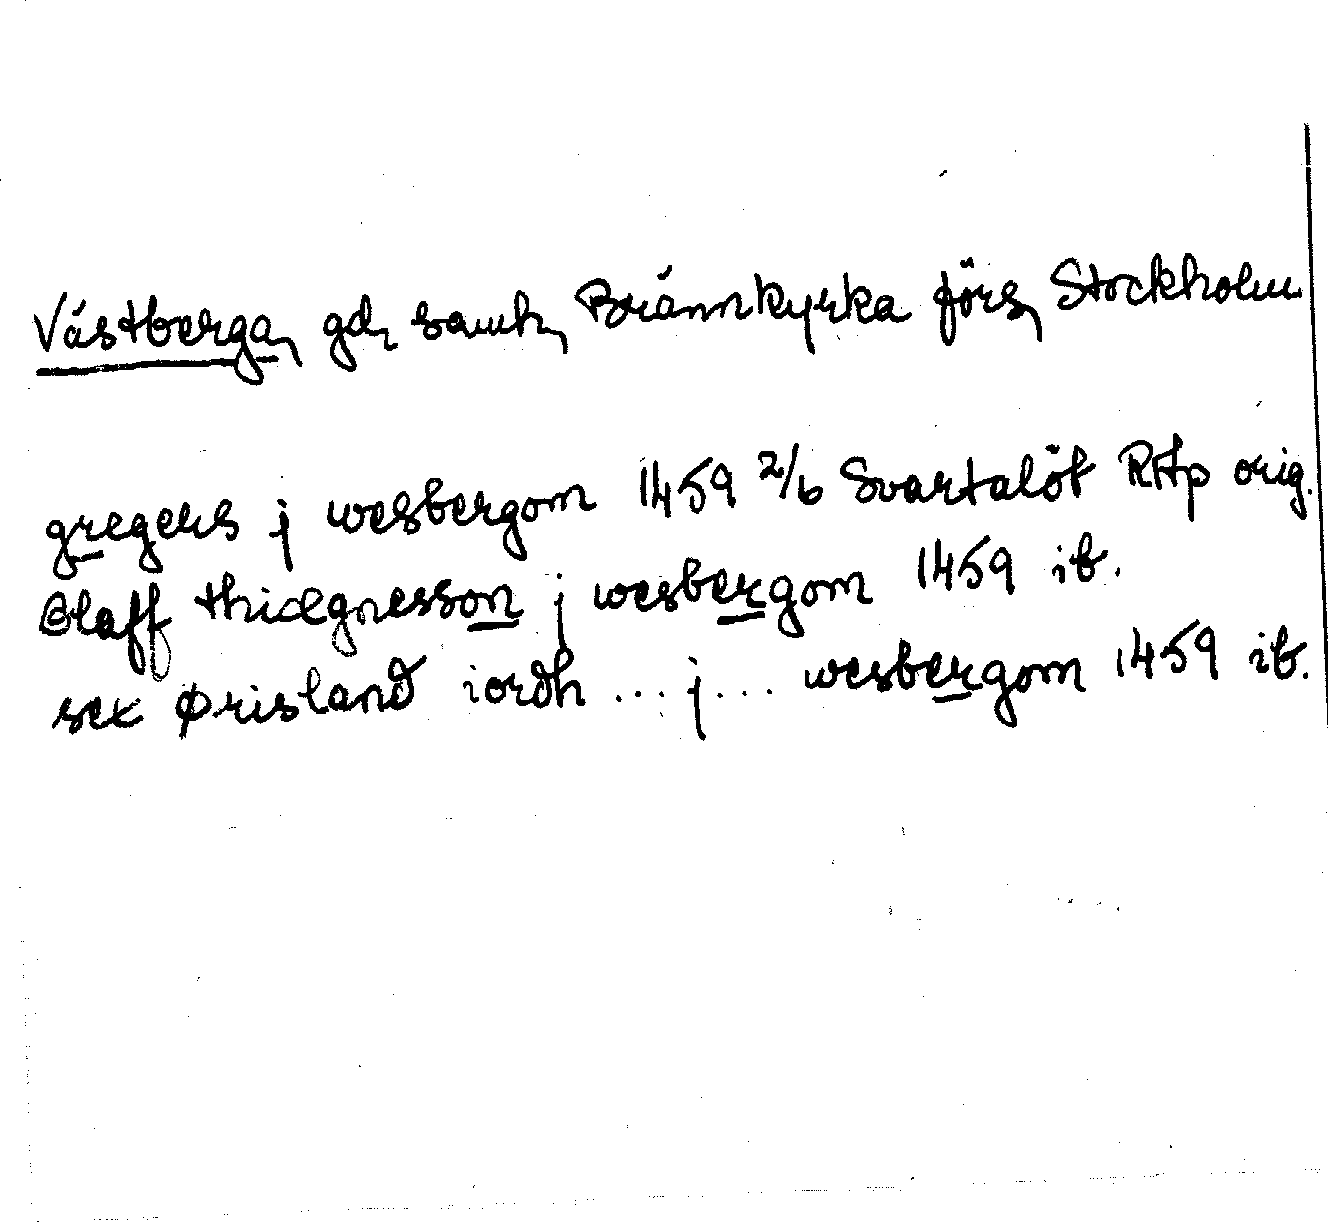 Västberga, gd, samh, Brännkyrka förs, Stockholm
gregers j wesbergom 1459 2/6 Svartalöt RAp orig.
Olaff thidegnesson j wesbergom 1459 ib.
sex ørisland iordh ... j ... wesbergom 1459 ib.